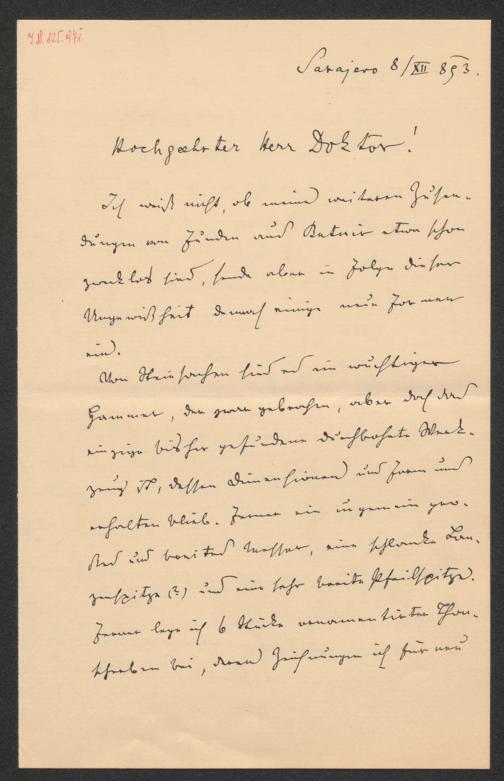 J.N. 125.971
Sarajevo 8/XII 893.
Hochgeehrter Herr Doktor!
Ich weiß nicht, ob meine weiteren Zusen-
dungen von Funden aus Butmir etwa schon
zwecklos sind, sende aber in Folge dieser
Ungewißheit dennoch einige neue Formen
ein.
Von Steinsachen sind es ein wuchtiger
Hammer, der zwar gebrochen, aber doch das
einzige bisher gefundene durchbohrte Werk-
zeug ist, dessen Dimensionen und Form uns
erhalten blieb. Ferner ein ungemein gro-
ßes und breites Messer, eine schlanke Lan-
zenspitze (?) und eine sehr breite Pfeilspitze.
Ferner lege ich 6 Stücke ornamentirter Thon-
scherben bei, deren Zeichnungen ich für neu